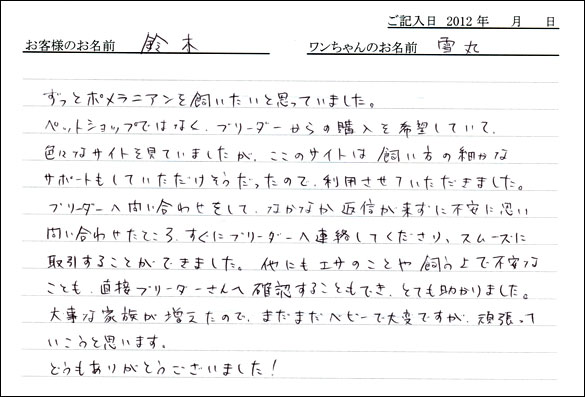 ご記入日 2012 年 月 日
お客様のお名前 鈴木 ワンちゃんのお名前 雪丸
ずっとポメラニアンを飼いたいと思っていました。
ペットショップではなく、ブリーダーからの購入を希望していて、
色々なサイトを見ていましたが、ここのサイトは飼い方の細かな
サポートもしていただけそうだったので、利用させていただきました。
ブリーダーへ問い合わせをして、なかなか返信が来ずに不安に思い
問い合わせたところ、すぐにブリーダーへ連絡してくださり、スムーズに
取引することができました。他にもエサのことや飼う上で不安な
ことも、直接ブリーダーさんへ確認することもでき、とても助かりました。
大事な家族が増えたので、まだまだベビーで大変ですが、頑張って
いこうと思います。
どうもありがとうございました!